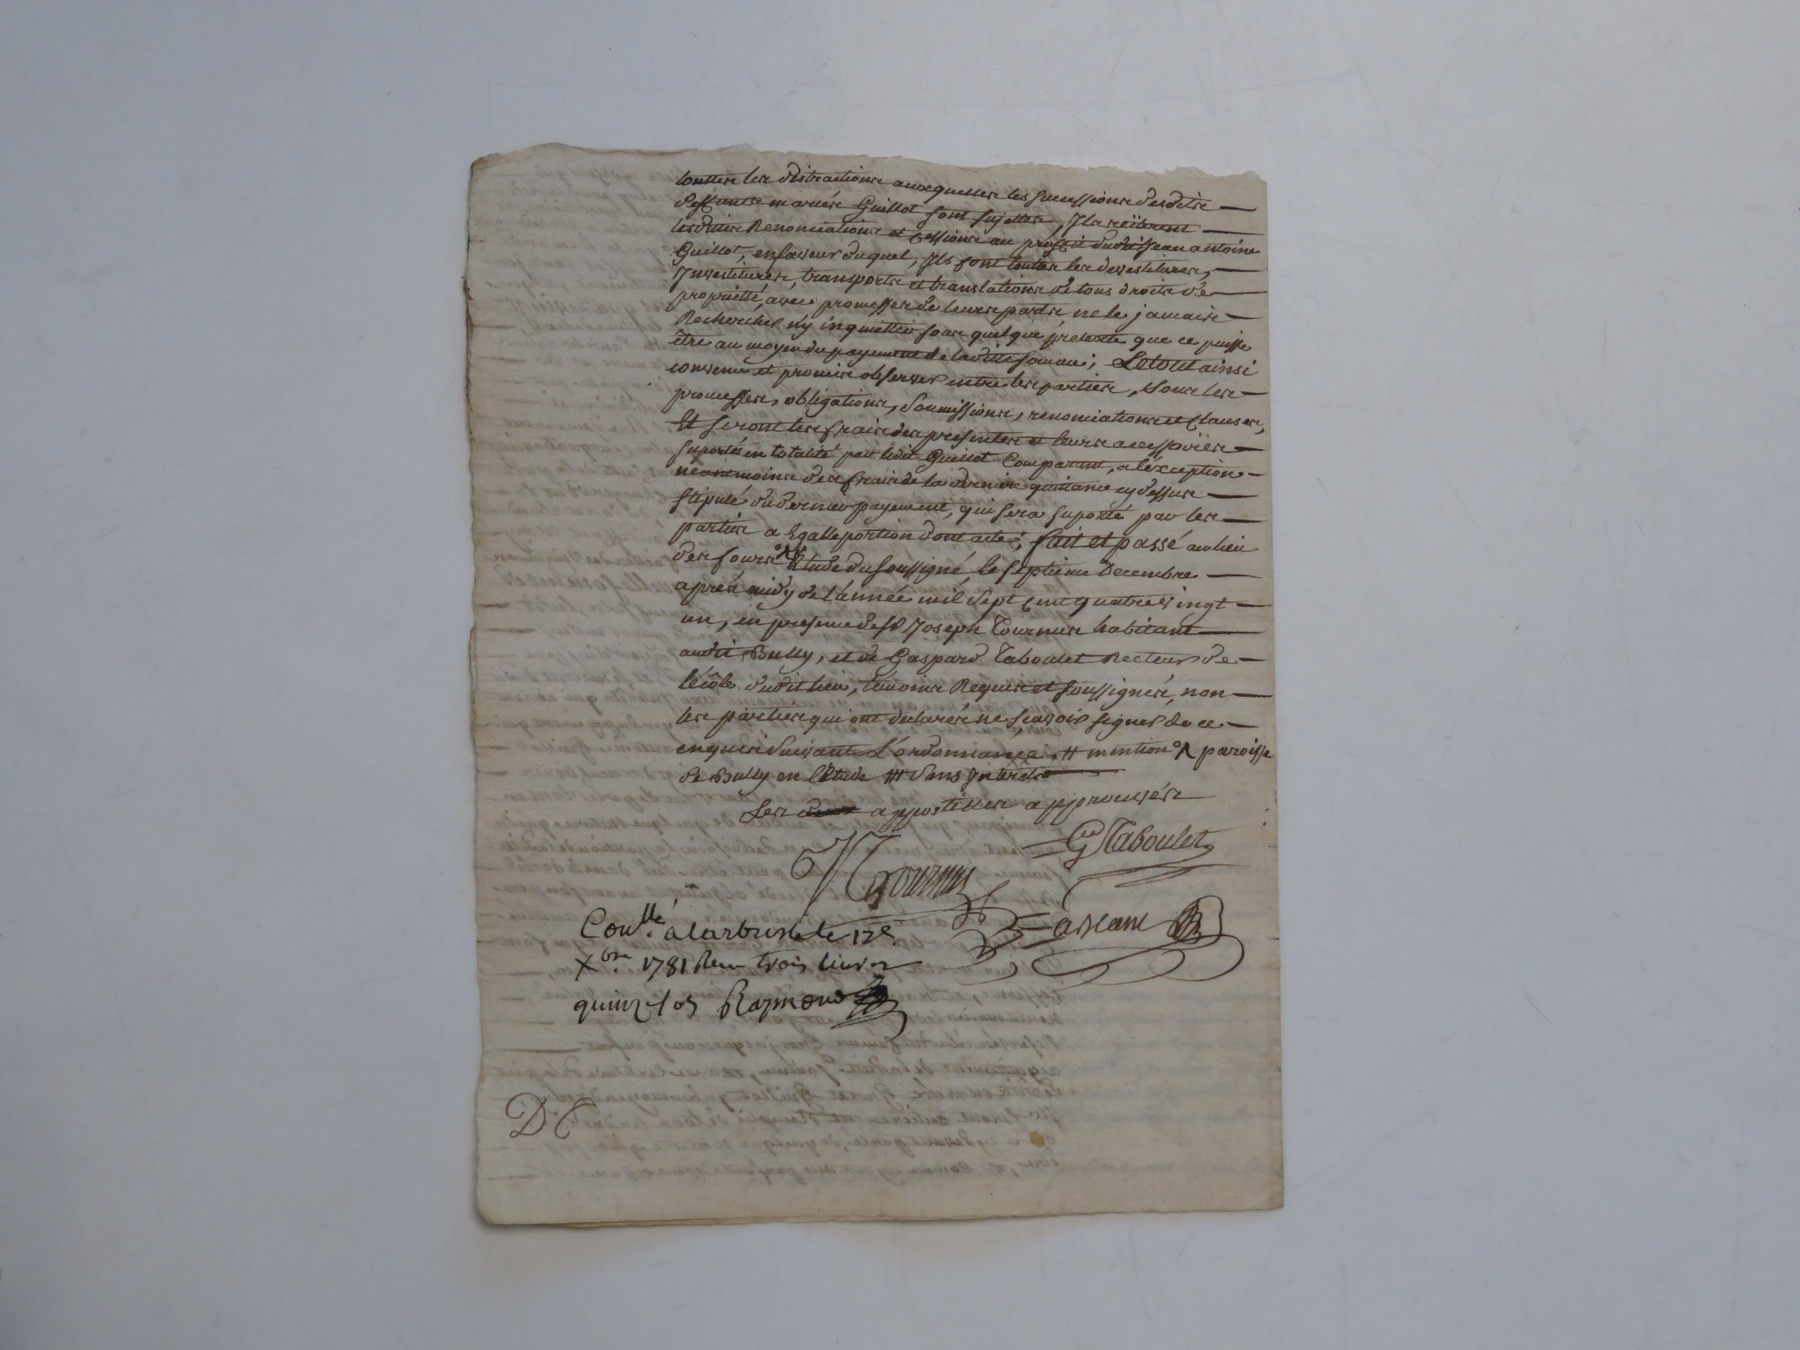 touttes les distractions auxquelles les successions desdits
deffunts mariés Guillot sont sujettes, Ils réiterent
lesdittes Renonciations et Cessions au proffit dudit Jean antoine
Guillot, en faveur duquel, Ils font toutes les devestitures,
Investitures, transports et translations de tous droits de
propriété, avec promesses de leurs parts ne le jamais
Rechercher n'y inquietter sous quelque prétexte que ce puisse
être au moyen du payement de laditte somme; Le tout ainsi
convenu et promis observer entre les parties, sous les
promesses, obligations, soumissions, renonciations et Clauses,
Et seront les frais des presentes et leurs accessoires
suportés en totalité par ledit Guillot Comparant, a léxception
neantmoins des frais de la derniere quittance cy dessus
stipulé du dernier payement, qui sera suporté par les
parties a Egalle portion dont acte; fait et passé au lieu
des fours Etude du soussigné, le septieme Decembre
après midy de l'année mil sept cent quatre vingt
un, en presence de sr Joseph Tournus habitant
audit Bully, et de Gaspard Taboulet Recteur de
lécole dudit lieu, témoins Requis et soussignés, non
les parties qui ont declarés ne sçavoir signer de ce
enquis suivant L'ordonnance. # mention paroisse
de Bully en Létude # sans
Les appostilles approuvées
Gd Taboulet
J Tournus
Conllé a larbresle le 12e
Xbre 1781 Reçu trois livres
quinz sos Raymond
D. C.